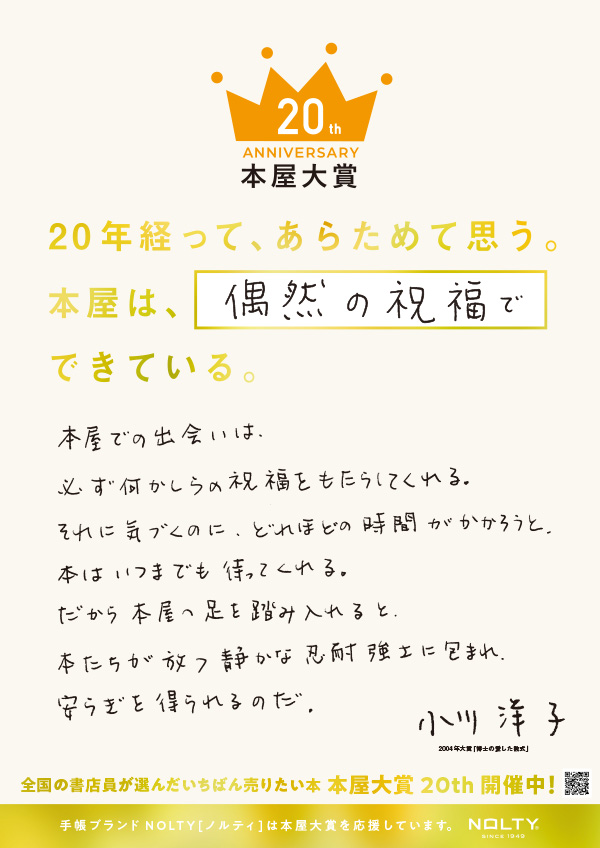 20th
ANNIVERSARY
本屋大賞
20年経って、あらためて思う。
本屋は、偶然の祝福で
できている。
本屋での出会いは、
必ず何かしらの祝福をもたらしてくれる。
それに気づくのに、どれほどの時間がかかろうと、
本はいつまでも待ってくれる。
だから本屋へ足を踏み入れると、
本たちが放つ静かな忍耐強さに包まれ、
安らぎを得られるのだ。
小川洋子
2004年大賞「博士の愛した数式」
全国の書店員が選んだいちばん売りたい本 本屋大賞 20th 開催中!
手帳ブランド NOLTY[ノルティ]は本屋大賞を応援しています。 NOLTY®
SINCE 1949